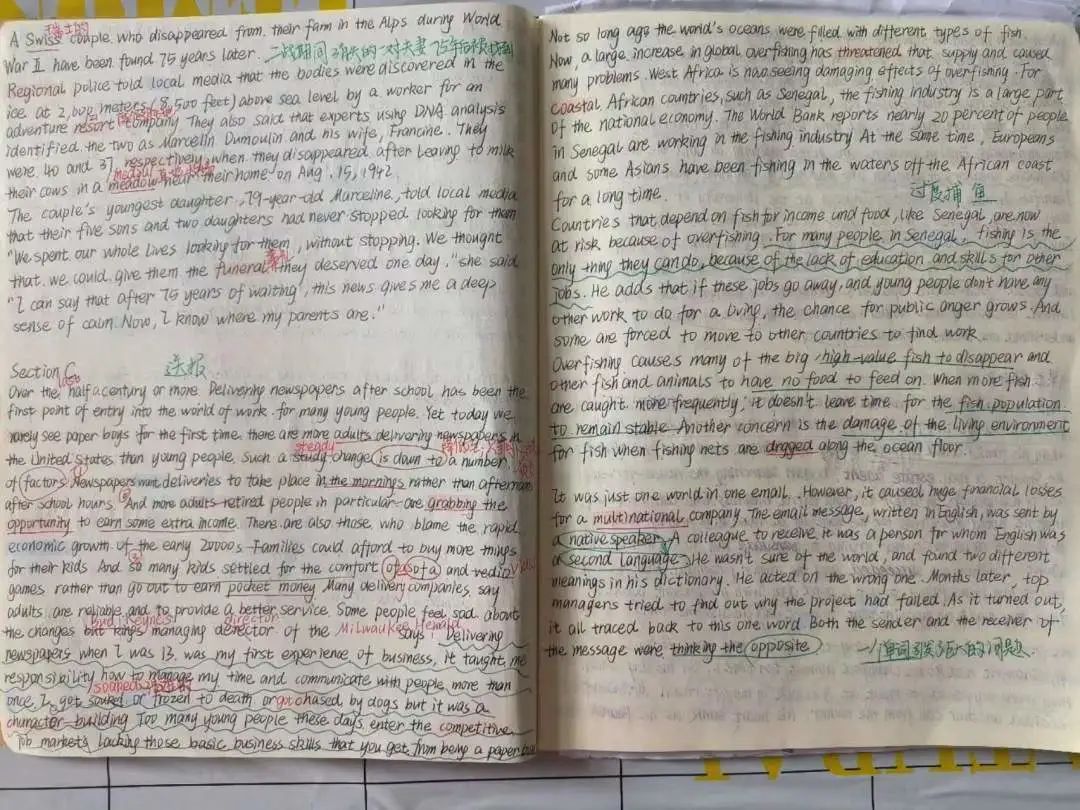 瑞士的
A Swiss couple who disappeared from their farm in the Alps during World
War II have been found 75 years later. 二战期间消失的一对夫妻75年后被找到
Regional police told local media that the bodies were discovered in the
ice at 2,600 meters (8,500 feet) above sea level by a worker for an
adventure resort company. They also said that experts using DNA analysis
identified the two as Marcelin Dumoulin and his wife, Francine. They
were 40 and 37, respectively, when they disappeared after leaving to milk
their cows in a meadow near their home on Aug. 15, 1942.
The couple's youngest daughter, 79-year-old Marceline, told local media
that their five sons and two daughters had never stopped looking for them
"We spent our whole lives looking for them, without stopping. We thought
that we could give them the funeral they deserved one day." she said
"I can say that after 75 years of waiting, this news gives me a deep
sense of calm. Now, I know where my parents are."
Section C 送报
last
Over the half a century or more Delivering newspapers after school has been the
first point of entry into the world of work for many young people. Yet today we
rarely see paper boys For the first time there are more adults delivering newspapers in
steady
the United States than young people, such a study change is down to a number
of factors ① Newspapers want deliveries to take place in the mornings rather than afternoons
after school hours. ② And more adults retired people in particular are grabbing the
opportunity to earn some extra income. There are also those who blame the rapid
economic growth of the early 20000s Families could afford to buy more things
③
for their kids And so many kids settled for the comfort of a sofa and vedio
games rather than go out to earn pocket money Many delivery companies, say
adults are reliable and to provide a better service. Some people feel sad about
Bud Keynes director Milwaukee Herald
the changes but kings, managing derector of the says: Delivering
newspapers when I was 13. was my first experience of business, it taught me
responsibility how to manage my time and communicate with people, more than
soaped
once, I get soaked or frozen to death or got chased by dogs but it was a
character building Too many young people these days enter the competitive
job markets lacking those basic business skills that you get from being a paper boy
Not so long ago the world's oceans were filled with different types of fish.
Now, a large increase in global overfishing has threatened that supply and caused
many problems. West Africa is now seeing damaging effects of overfishing. For
coastal African countries, such as Senegal, the fishing industry is a large part
of the national economy. The World Bank reports nearly 20 percent of people
in Senegal are working in the fishing industry At the same time, Europeans
and some Asians have been fishing in the waters off the African coast
for a long time. 过度捕鱼
Countries that depend on fish for income and food, like Senegal, are now
at risk because of overfishing. For many people in Senegal, fishing is the
only thing they can do, because of the lack of education and skills for other
jobs. He adds that if these jobs go away, and young people don't have any
other work to do for a living, the chance for public anger grows. And
some are forced to move to other countries to find work
Overfishing causes many of the big high-value fish to disappear and
other fish and animals to have no food to feed on. When more fish
are caught more frequently, it doesn't leave time for the fish population
to remain stable Another concern is the damage of the living environment
for fish when fishing nets are dragged along the ocean floor.
It was just one world in one email. However, it caused huge financial losses
for a multinational company. The email message, written in English, was sent by
a native speaker. A colleague to receive it was a person for whom English was
a second language. He wasn't sure of the world, and found two different
meanings in his dictionary. He acted on the wrong one. Months later, top
managers tried to find out why the project had failed. As it turned out,
it all traced back to this one word Both the sender and the receiver of
the message were thinking the opposite 一个单词引发巨大的问题